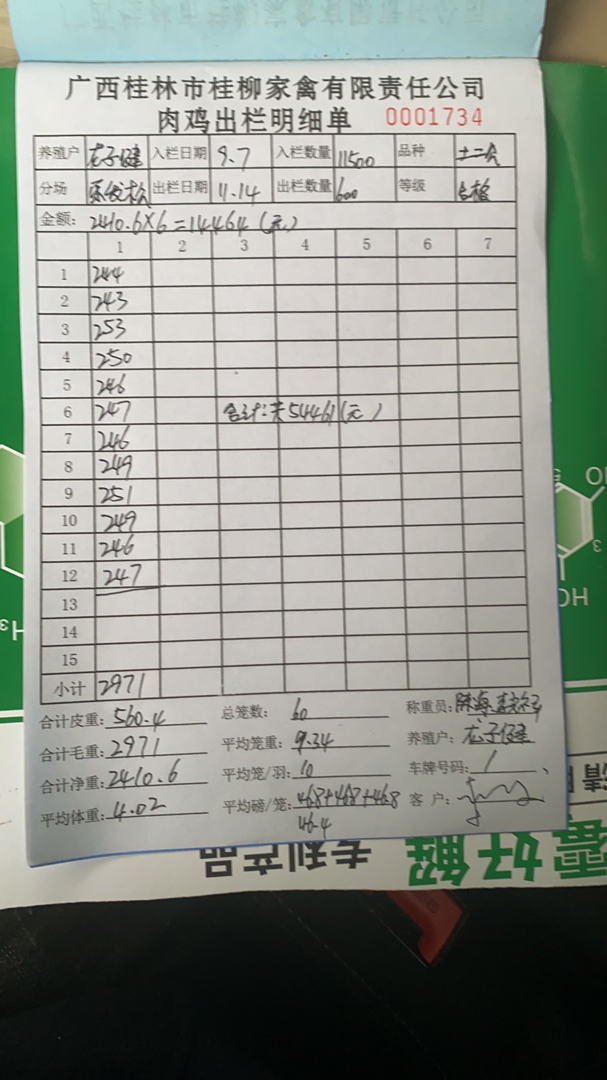 广西桂林市桂柳家禽有限责任公司
肉鸡出栏明细单 0001734
养殖户 龙子健 入栏日期 9.7 入栏数量 11500 品种
分场 出栏日期 11.14 出栏数量 600 等级 合格
金额: 2410.6×6=14464(元)
1 2 3 4 5 6 7
1 244
2 243
3 253
4 250
5 246
6 247 合计:共54461(元)
7 246
8 249
9 251
10 249
11 246
12 247
13
14
15
小计 2971
合计皮重: 560.4 总笼数: 60 称重员:
合计毛重: 2971 平均笼重: 9.34 养殖户: 龙子健
合计净重: 2410.6 平均笼/羽: 10 车牌号码: /
平均体重: 4.02 平均磅/笼: 46.8+46.8+46.8 客户:
46.4
专利产品
霉好解